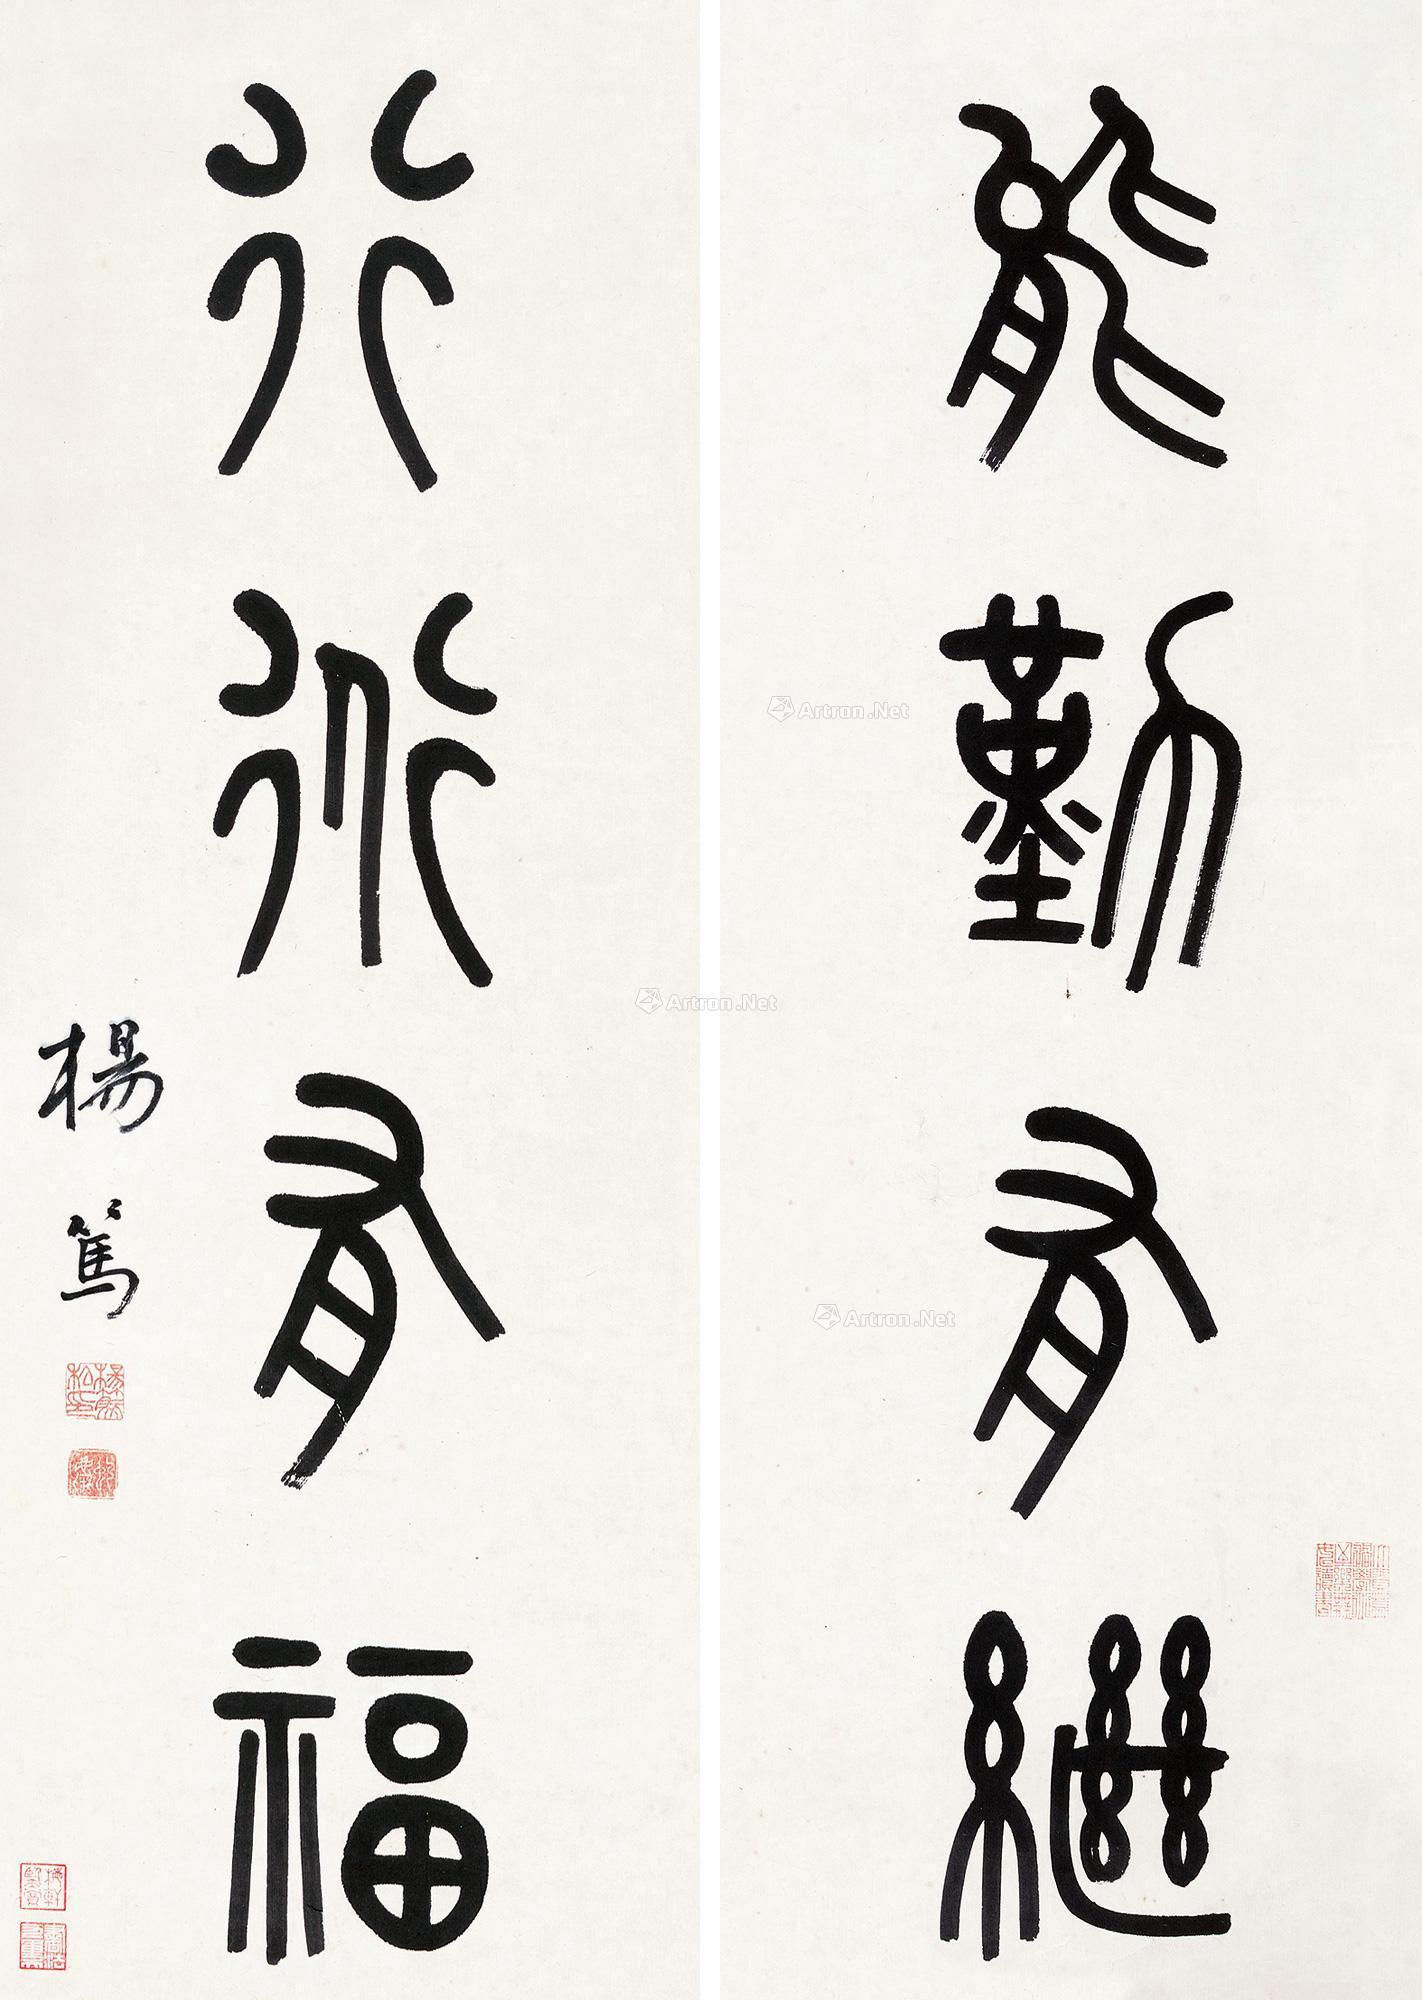 能勤有繼
行道有福
楊篤
Artron.Net
Artron.Net
Artron.Net